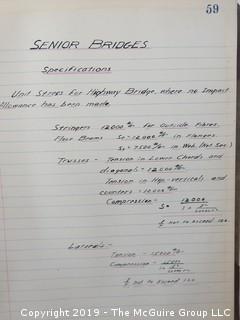 59
SENIOR BRIDGES
Specifications
Unit Stress For Highway Bridge, where no Impact
Allowance has been made.
Stringers 12000 #/□" for Outside Fibres.
Floor Beams So = 12000 #/□" in Flanges.
Ss = 7500 #/□" in Web. (Net Sec.)
Trusses - Tension in Lower Chords and
diagonals = 12000 #/□"
Tension in Hip-verticals, and
counters = 10000 #/□"
Compression:
S = 12000
1 +
not to exceed 100.
Laterals:-
Tension = 15000 #/□"
Compression =
not to exceed 120
Copyright 2019 - The McGuire Group LLC